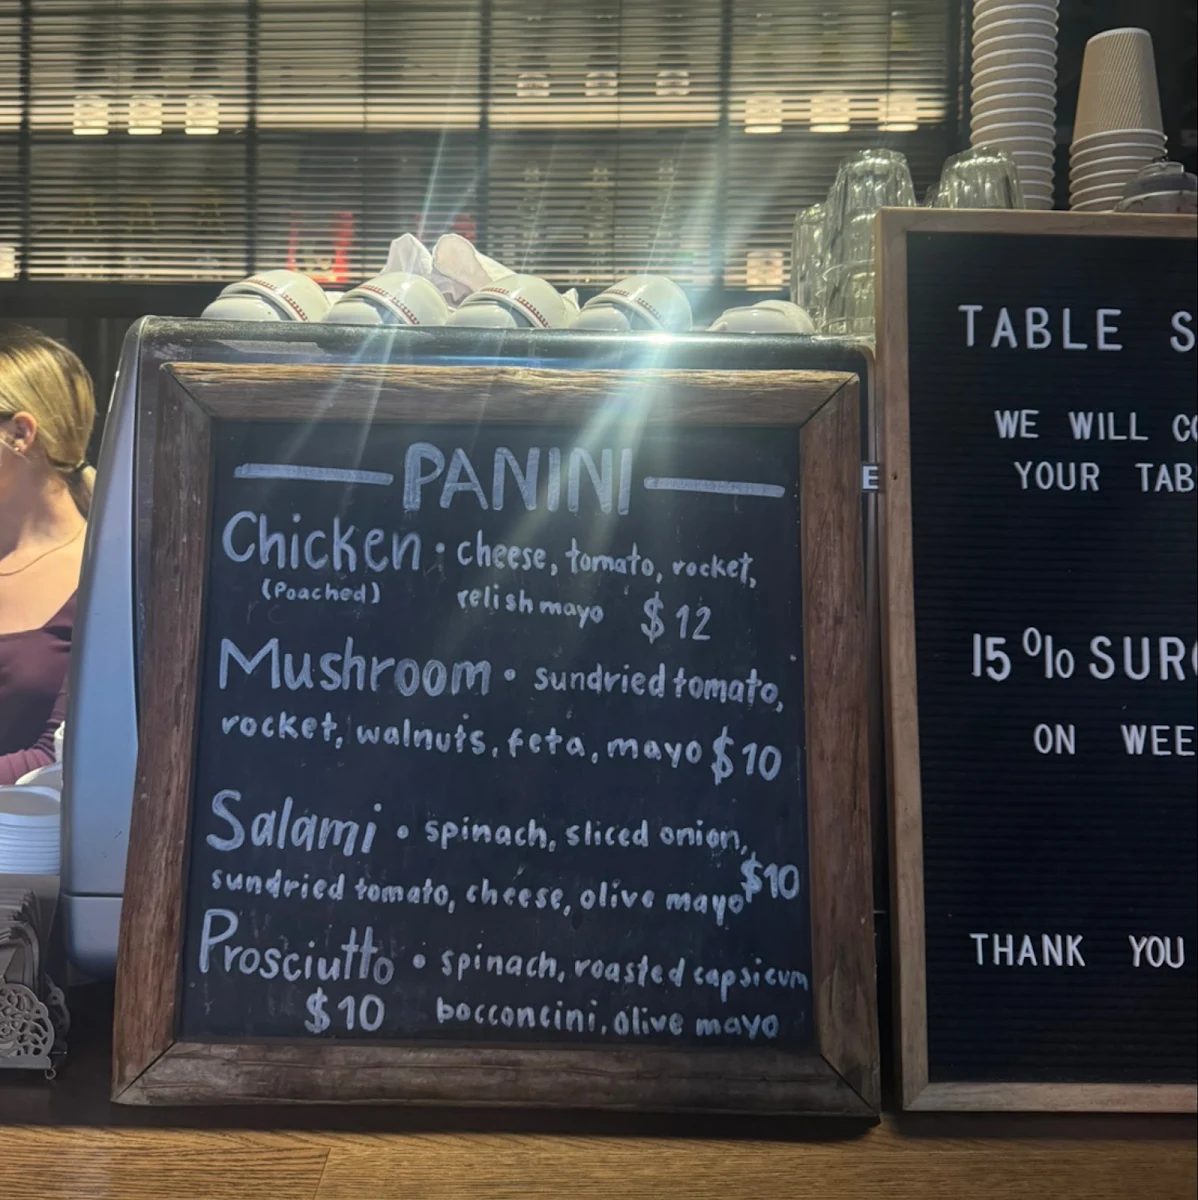 PANINI
Chicken • cheese, tomato, rocket,
(Poached) relish mayo $12
Mushroom • sundried tomato,
rocket, walnuts, feta, mayo $10
Salami • spinach, sliced onion,
$10
sundried tomato, cheese, olive mayo
Prosciutto • spinach, roasted capsicum
$10 bocconcini, olive mayo
E
TABLE S
WE WILL CO
YOUR TAB
15% SURC
ON WEE
THANK YOU